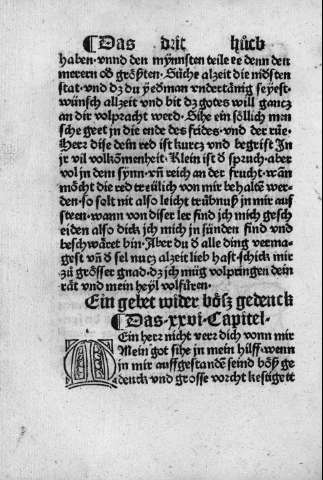 ¶Das drit bůch
haben·vnnd den mynnsten teile ee denn den
merern oð grösten. Sůche alzeit die nidsten
stat·vnd dz du yedman vndertånig seyest·
wünsch allzeit vnd bit dz gotes will gancz
an dir volpracht werd. Sihe ein söllich man
sche geet in die ende des frides·vnd der růe.
Herr dise dein red ist kurcz vnd begrift In
jr vil volkōmenheit. Klein ist ð spruch·aber
vol jn dem synn·vñ reich an der frucht·wañ
möcht die red treülich von mir behaltē wer-
den·so solt nit also leicht trůbnuß in mir auf
steen·wann von diser ler find ich mich gesch
eiden also dick jch mich jn sünden find vnd
beschwåret bin. Aber du ð alle ding verma-
gest vñ ð sel nucz alzeit lieb hast·schick mir
zů grösser gnad·dz jch müg volpringen dein
råt vnd mein heyl volfüren.
Ein gebet wider bösz gedenck
¶Das·xxvi·Capitel·
MEin herr nicht verr dich vonn mir
Mein got sihe in mein hilff·wenn
in mir auffgestandē seind bösz ge
denck vnd grosse vorcht kestigete